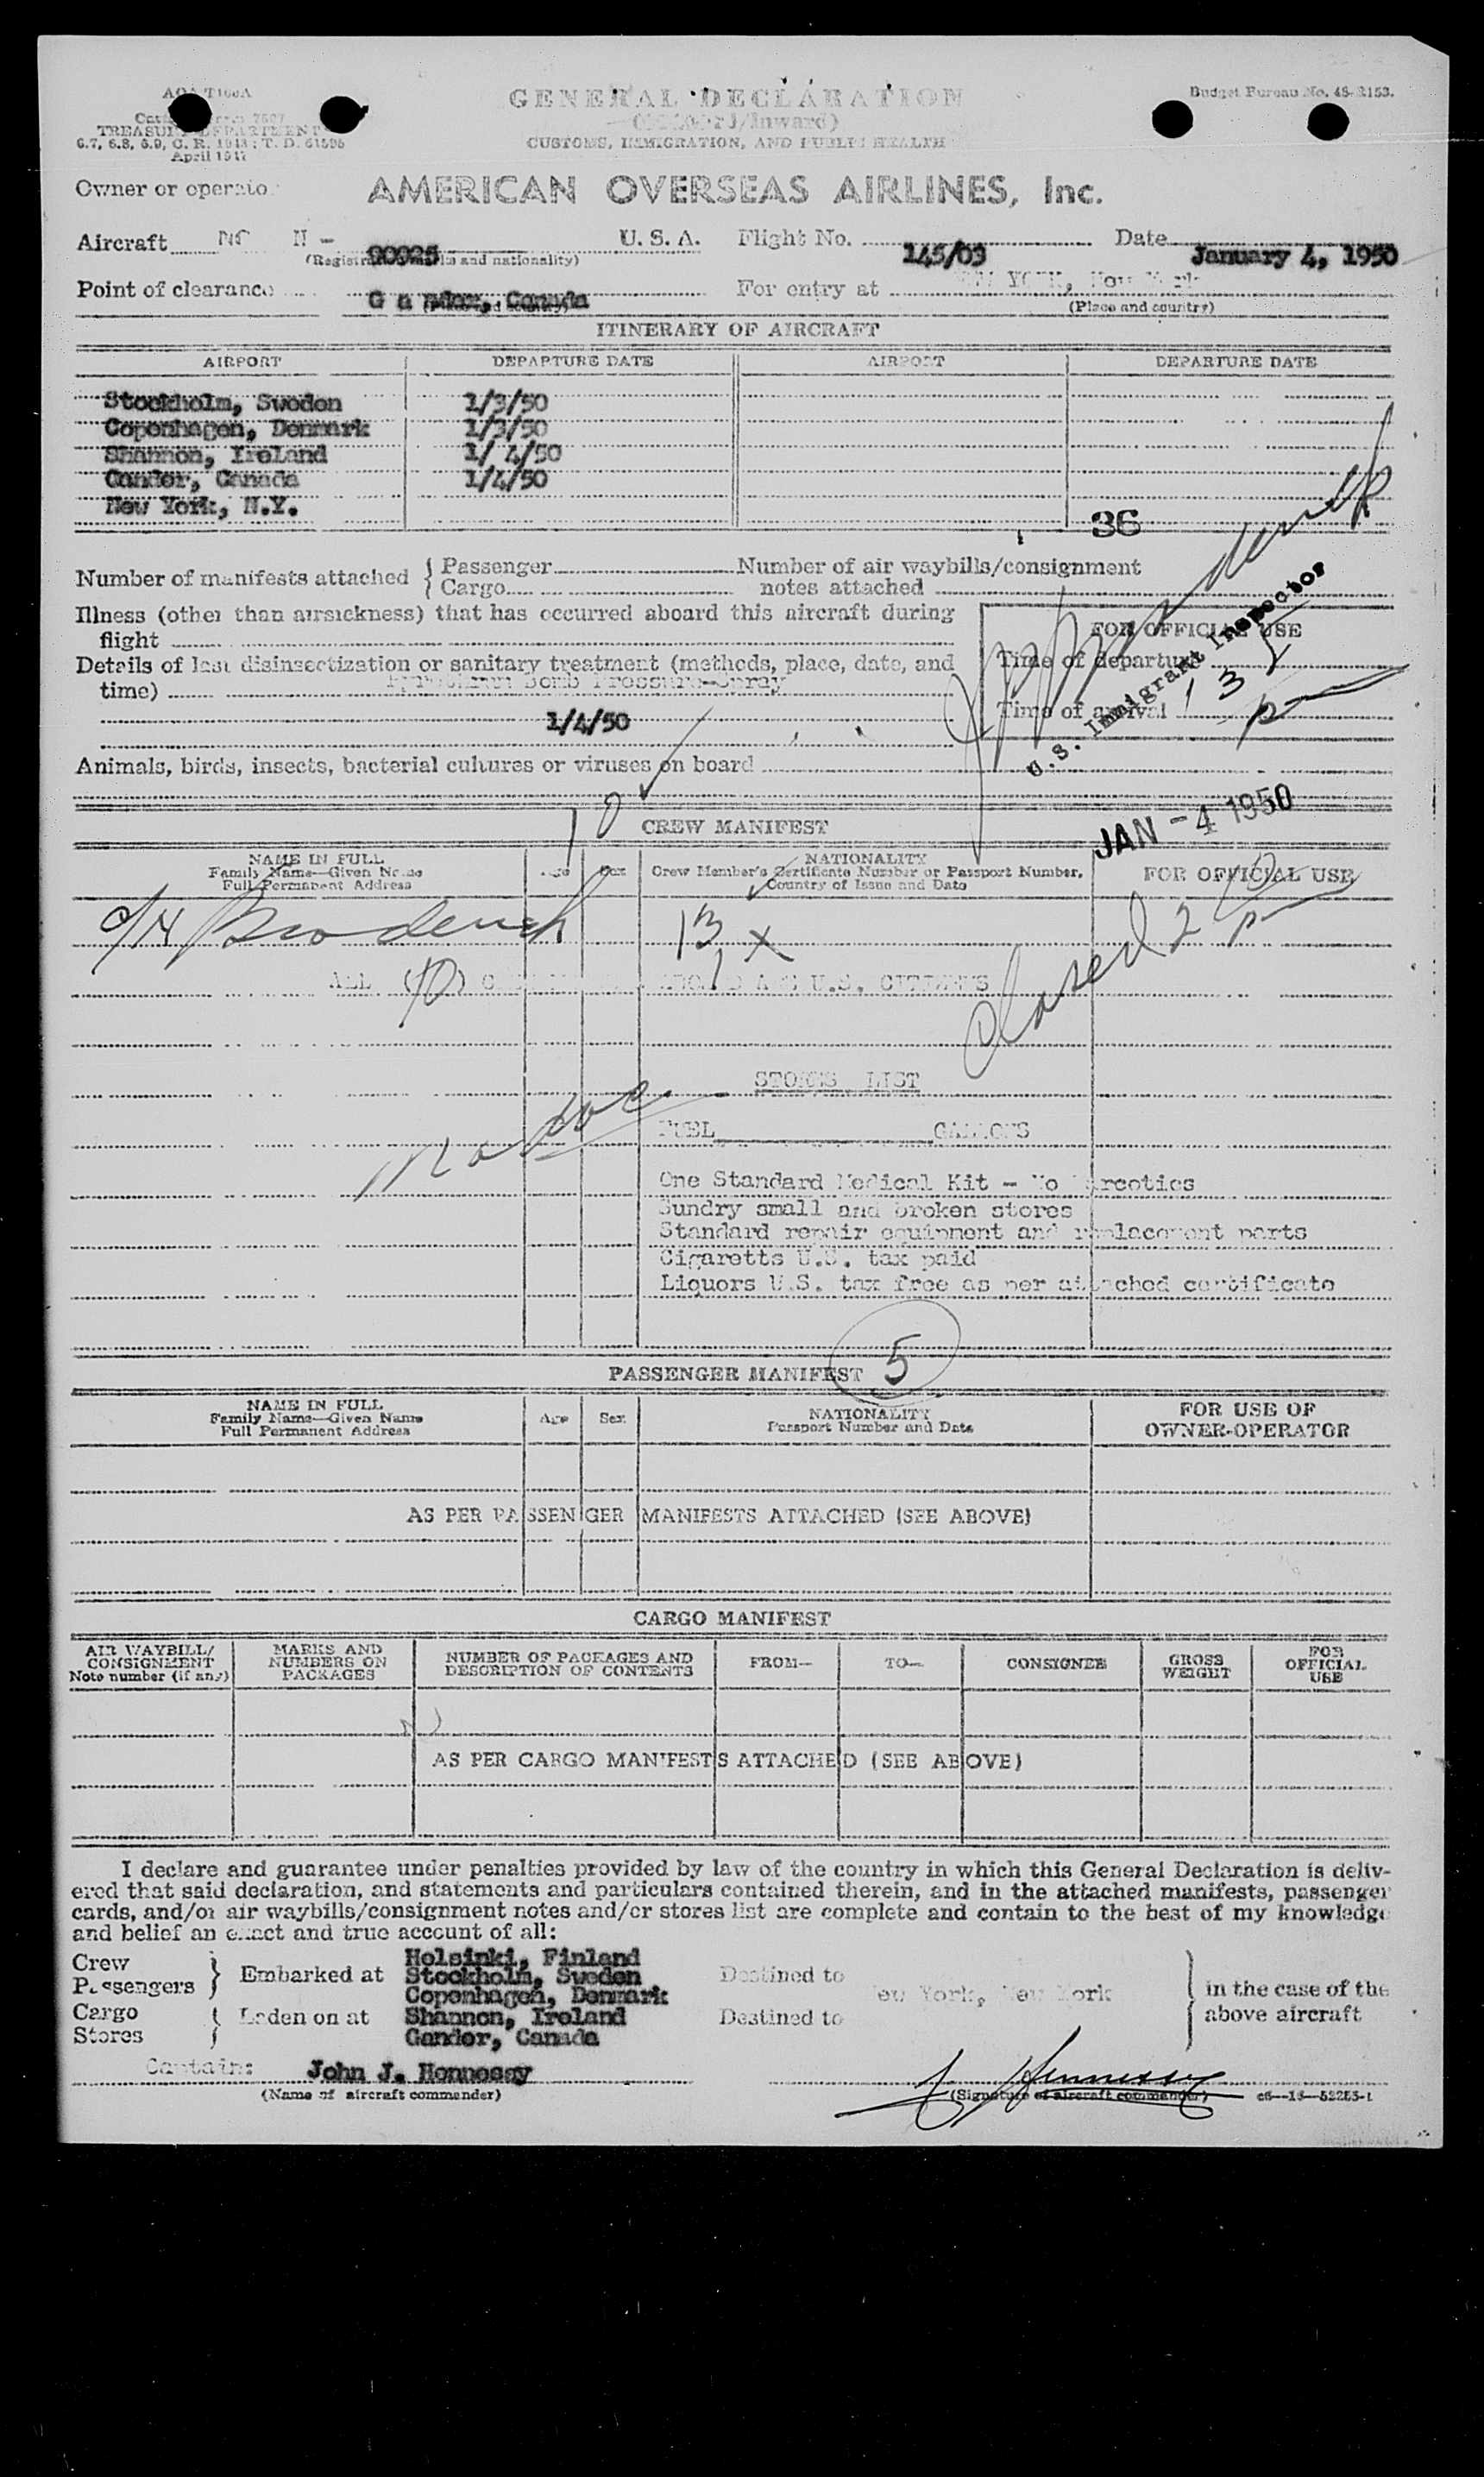 GENERAL DECLARATION
Budget Bureau No.
(/Inward)
TREASURY DEPARTMENT
CUSTOMS, IMMIGRATION, AND PUBLIC HEALTH
April 1947
Owner or operato
AMERICAN OVERSEAS AIRLINES, Inc.
Aircraft NC N - 90925 U. S. A. Flight No. 145/03 Date January 4, 1950
(Registration marks and nationality)
Point of clearance G a nder, Canada For entry at NEW YORK, New York
(Place and country) (Place and country)
ITINERARY OF AIRCRAFT
AIRPORT DEPARTURE DATE AIRPORT DEPARTURE DATE
Stockholm, Sweden 1/3/50
Copenhagen, Denmark 1/3/50
Shannon, Ireland 1/ 4/50
Gander, Canada 1/4/50
New York, N.Y.
36
Number of manifests attached { Passenger Number of air waybills/consignment
Cargo notes attached
Illness (other than airsickness) that has occurred aboard this aircraft during
flight
FOR OFFICIAL USE
Details of last disinsectization or sanitary treatment (methods, place, date, and
time) Bomb Pressure-Spray
Time of departure
Time of arrival
U.S. Immigrant Inspector
1/4/50
Animals, birds, insects, bacterial cultures or viruses on board
10
JAN - 4 1950
CREW MANIFEST
NAME IN FULL
Family Name—Given Name
Full Permanent Address
Age Sex
NATIONALITY
Crew Member's Certificate Number or Passport Number,
Country of Issue and Date
FOR OFFICIAL USE
13 x
ALL (10) U.S. CITIZENS
Closed 2
STORES LIST
no
FUEL GALLONS
One Standard Medical Kit - No Narcotics
Sundry small and broken stores
Standard repair equipment and replacement parts
Cigaretts U.S. tax paid
Liquors U.S. tax free as per attached certificate
PASSENGER MANIFEST 5
NAME IN FULL
Family Name—Given Name
Full Permanent Address
Age Sex
NATIONALITY
Passport Number and Date
FOR USE OF
OWNER-OPERATOR
AS PER PASSENGER MANIFESTS ATTACHED (SEE ABOVE)
CARGO MANIFEST
AIR WAYBILL/
CONSIGNMENT
Note number (if any)
MARKS AND
NUMBERS ON
PACKAGES
NUMBER OF PACKAGES AND
DESCRIPTION OF CONTENTS
FROM— TO— CONSIGNEE
GROSS
WEIGHT
FOR
OFFICIAL
USE
AS PER CARGO MANIFESTS ATTACHED (SEE ABOVE)
I declare and guarantee under penalties provided by law of the country in which this General Declaration is deliv-
ered that said declaration, and statements and particulars contained therein, and in the attached manifests, passenger
cards, and/or air waybills/consignment notes and/or stores list are complete and contain to the best of my knowledge
and belief an exact and true account of all:
Crew
Passengers } Embarked at
Cargo
Stores } Laden on at
Helsinki, Finland
Stockholm, Sweden
Copenhagen, Denmark
Shannon, Ireland
Gander, Canada
Destined to
Destined to
New York, New York
in the case of the
above aircraft
Captain: John J. Hennessy
(Name of aircraft commander)
J Hennessy
(Signature of aircraft commander)